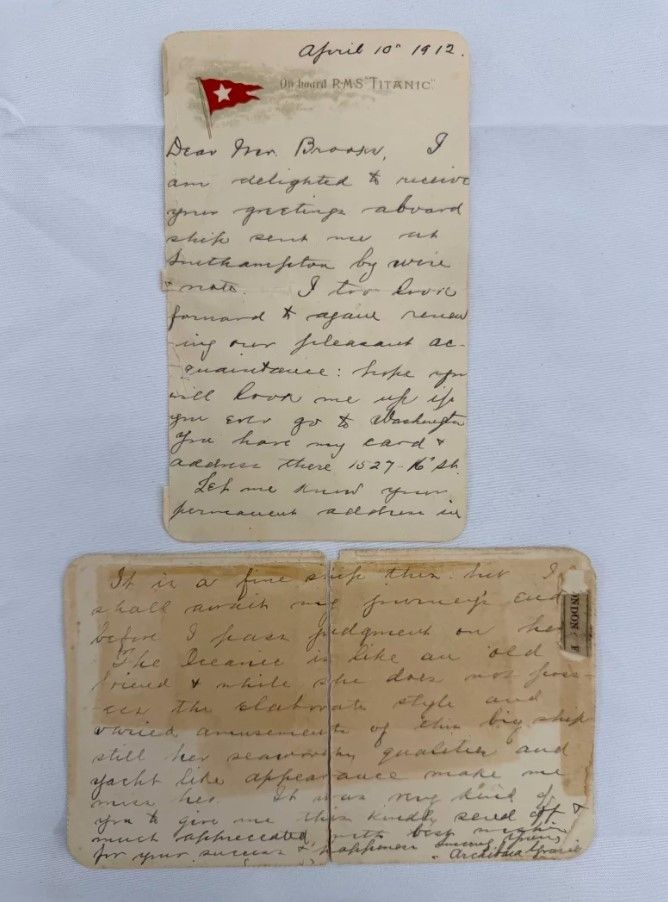 April 10" 1912.
On board R.M.S. "TITANIC."
Dear Mr. Brooks, I
am delighted to receive
your greetings aboard
ship sent me at
Southampton by wire
& note. I too look
forward to again renew
-ing our pleasant ac-
quaintance: hope you
will look me up if
you ever go to Washington
You have my card &
address there 1527-16" St.
Let me know your
permanent address in
It is a fine ship this but I
shall await my journeys end
before I pass judgment on her
The Oceanic is like an old
friend & while she does not poss-
ess the elaborate style and
varied amusements of this big ship
still her seaworthy qualities and
yacht like appearance make me
miss her. It was very kind of
you to give me this kindly send off &
much appreciated with best wishes
for your success & happiness
Archibald Gracie
LONDON